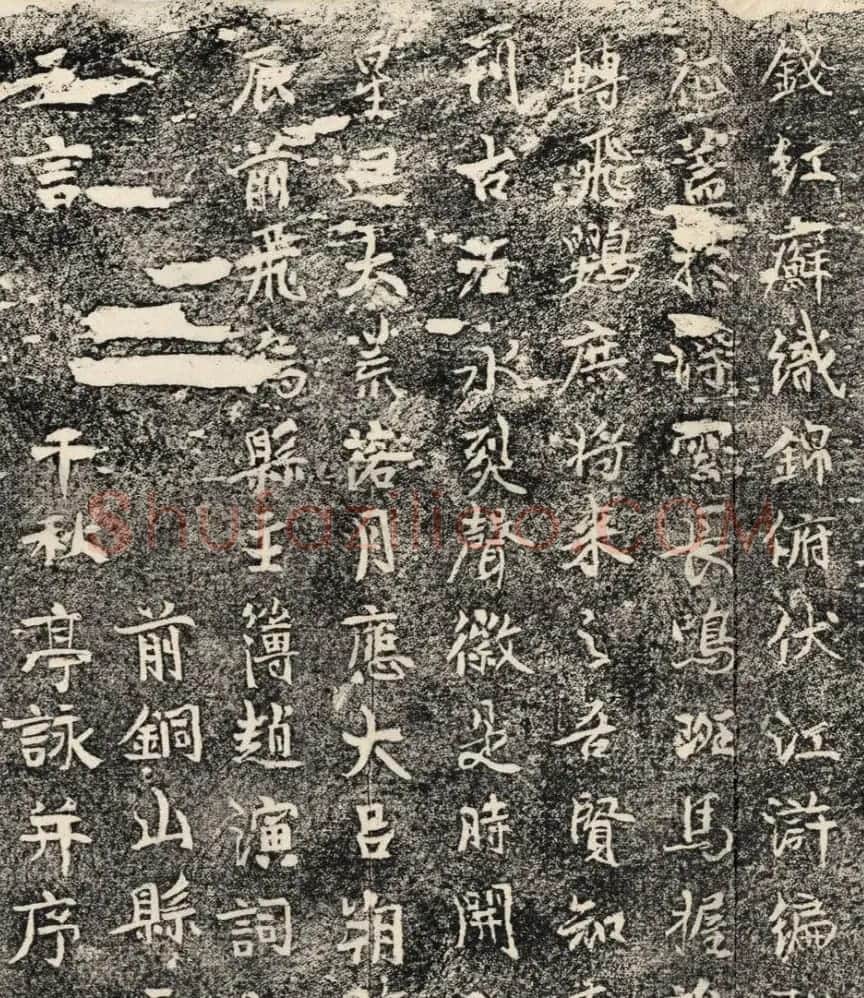 錢紅癬織錦俯伏江滸編
蓋於深雲長鳴班馬握
轉飛鷄庶將来之吾賢知
刊古水裂聲徽是時開
星迴大荒落月應大呂朔
辰前飛烏縣主簿趙演詞
前銅山縣
五言 千秋亭詠并序
Shufaziliao.COM